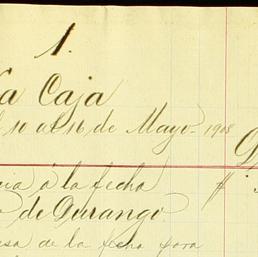 1.
a Caja
10 al 16 de Mayo - 1908
cia á la fecha #
de Durango
sa de la fecha para